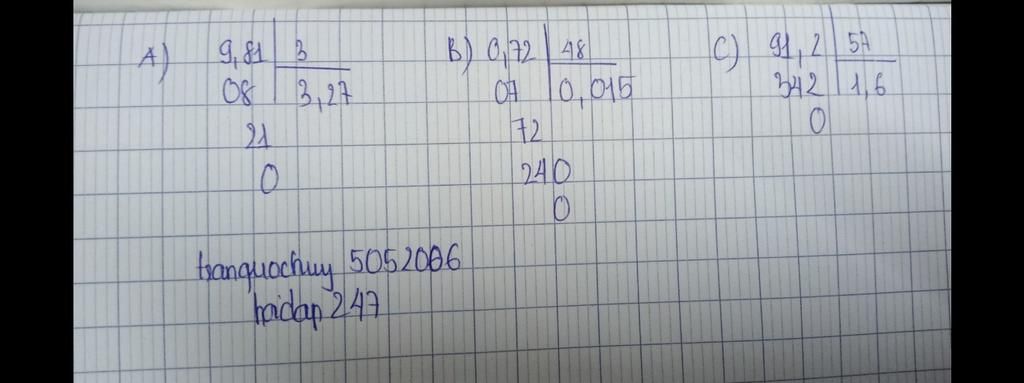 A) 9,81 3
08 3,27
21
0
B) 0,72 48
07 0,015
72
240
0
C) 91,2 57
342 1,6
0
tranquochuy 5052006
hoidap 247